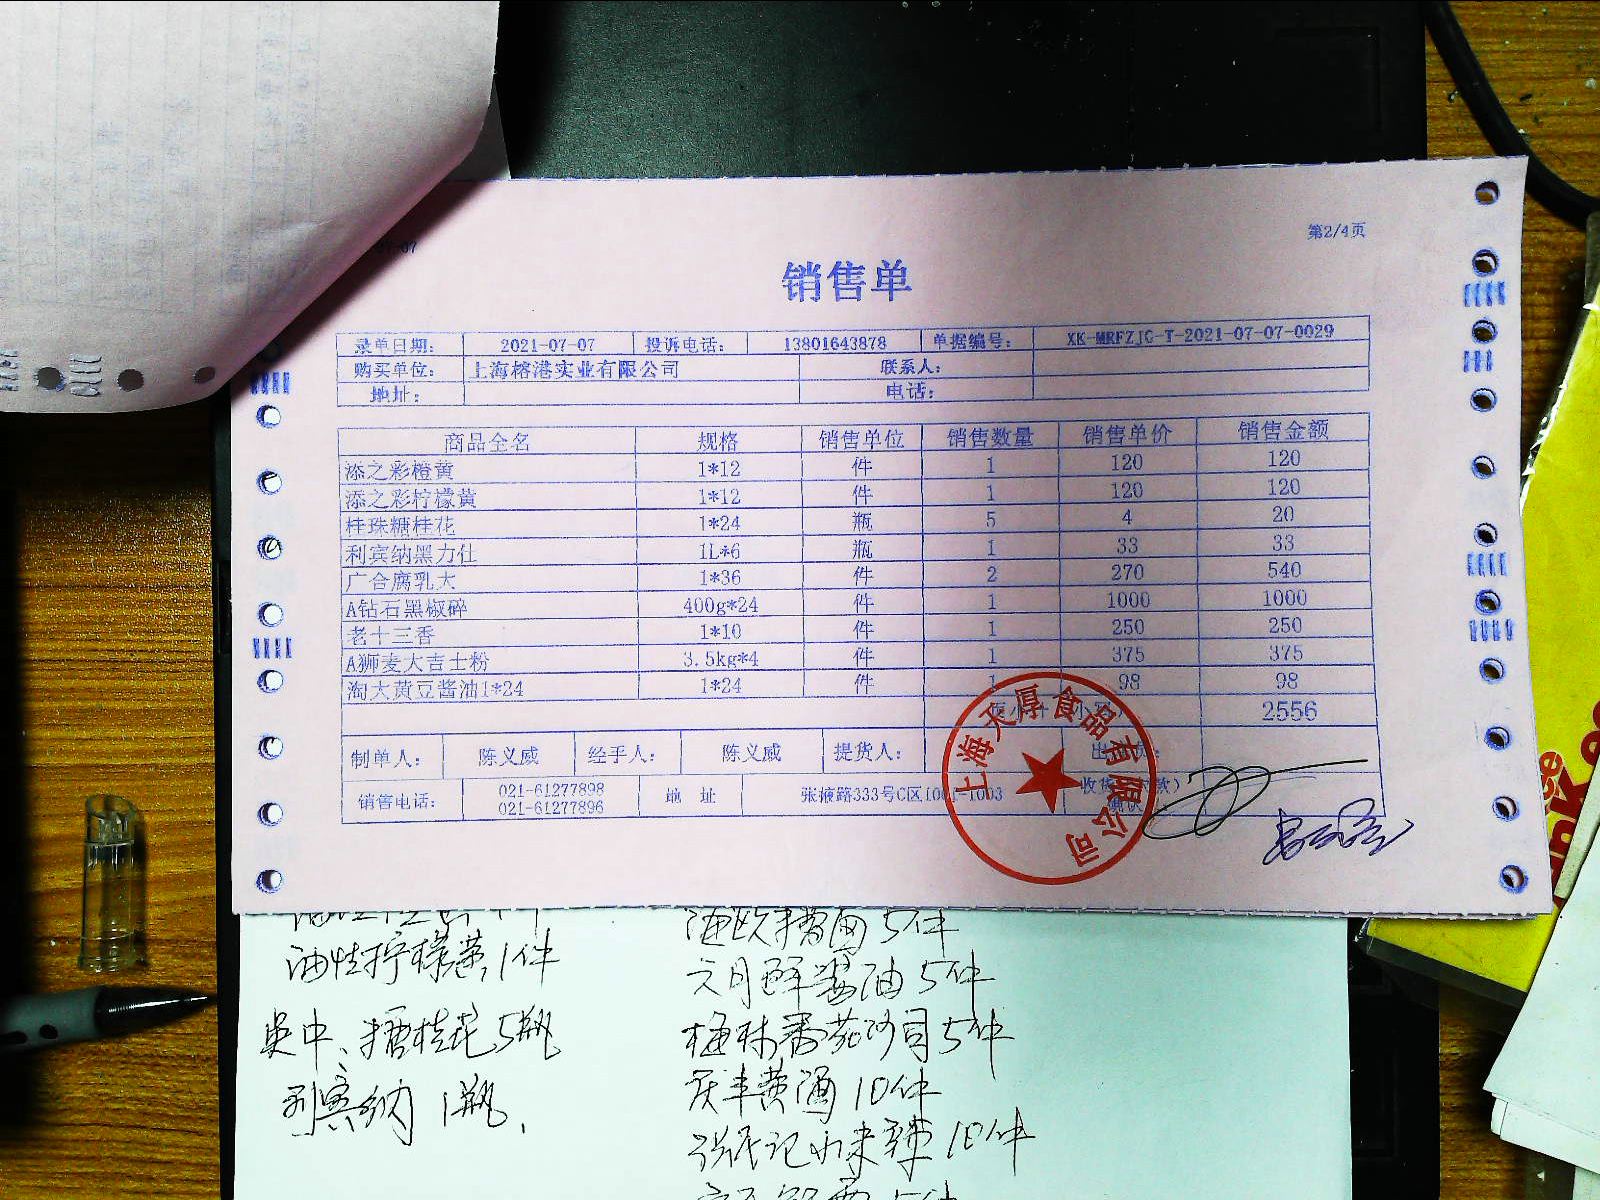 第2/4页
销售单
录单日期: 2021-07-07 投诉电话: 13801643878 单据编号: XK-MRFZJG-T-2021-07-07-0029
购买单位: 上海榕港实业有限公司 联系人:
地址: 电话:
商品全名 规格 销售单位 销售数量 销售单价 销售金额
添之彩橙黄 1*12 件 1 120 120
添之彩柠檬黄 1*12 件 1 120 120
桂珠糖桂花 1*24 瓶 5 4 20
利宾纳黑力仕 1L*6 瓶 1 33 33
广合腐乳大 1*36 件 2 270 540
A钻石黑椒碎 400g*24 件 1 1000 1000
老十三香 1*10 件 1 250 250
A狮麦大吉士粉 3.5kg*4 件 1 375 375
淘大黄豆酱油1*24 1*24 件 1 98 98
2556
制单人: 陈义威 经手人: 陈义威 提货人:
销售电话: 021-61277898 地 址 张掖路333号C区1001-1003
021-61277896
上海天厚食品有限公司
油性柠檬黄 1件
5件
六月鲜酱油 5件
糖桂花 5瓶
梅林番茄沙司 5件
利宾纳 1瓶
黄酒 10件
10件